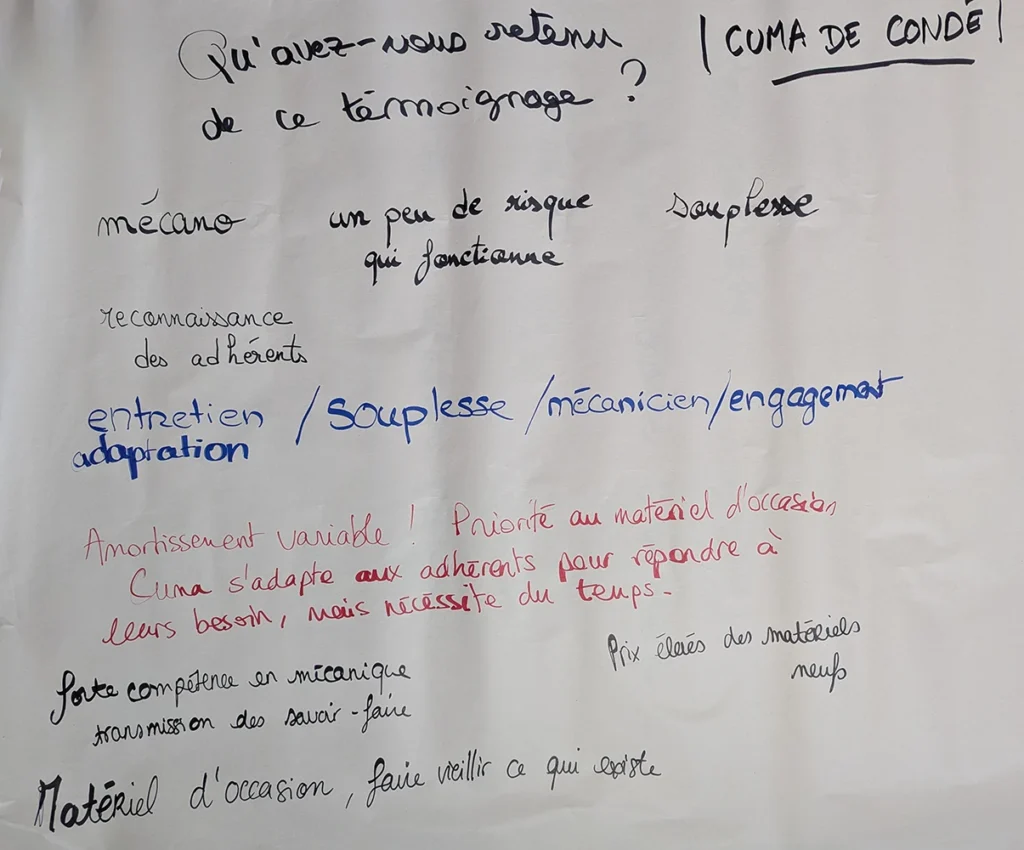 Qu'avez-vous retenu
de ce témoignage ?
| CUMA DE CONDÉ |
mécano
un peu de risque
qui fonctionne
souplesse
reconnaissance
des adhérents
entretien / souplesse / mécanicien / engagement
adaptation
Amortissement variable ! Priorité au matériel d'occasion
Cuma s'adapte aux adhérents pour répondre à
leurs besoin, mais nécessite du temps.
Prix élevés des matériels
neufs
forte compétence en mécanique
transmission des savoir-faire
Matériel d'occasion, faire vieillir ce qui existe